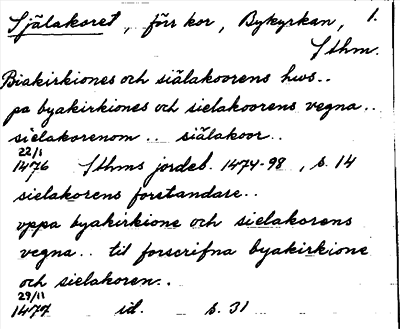 Själakoret, förr kor, Bykyrkan, 1.
Sthm.
Biakirkiones och siälakoorens hws..
pa byakirkiones och sielakoorens vegna..
sielakorenom.. siälakoor..
22/1
1476 Sthms jordeb. 1474-98, s. 14
sielakorens forstandare..
vppa byakirkione och sielakorens
vegna.. til forscrifna byakirkione
och sielakoren..
29/11
1477 id. s. 31